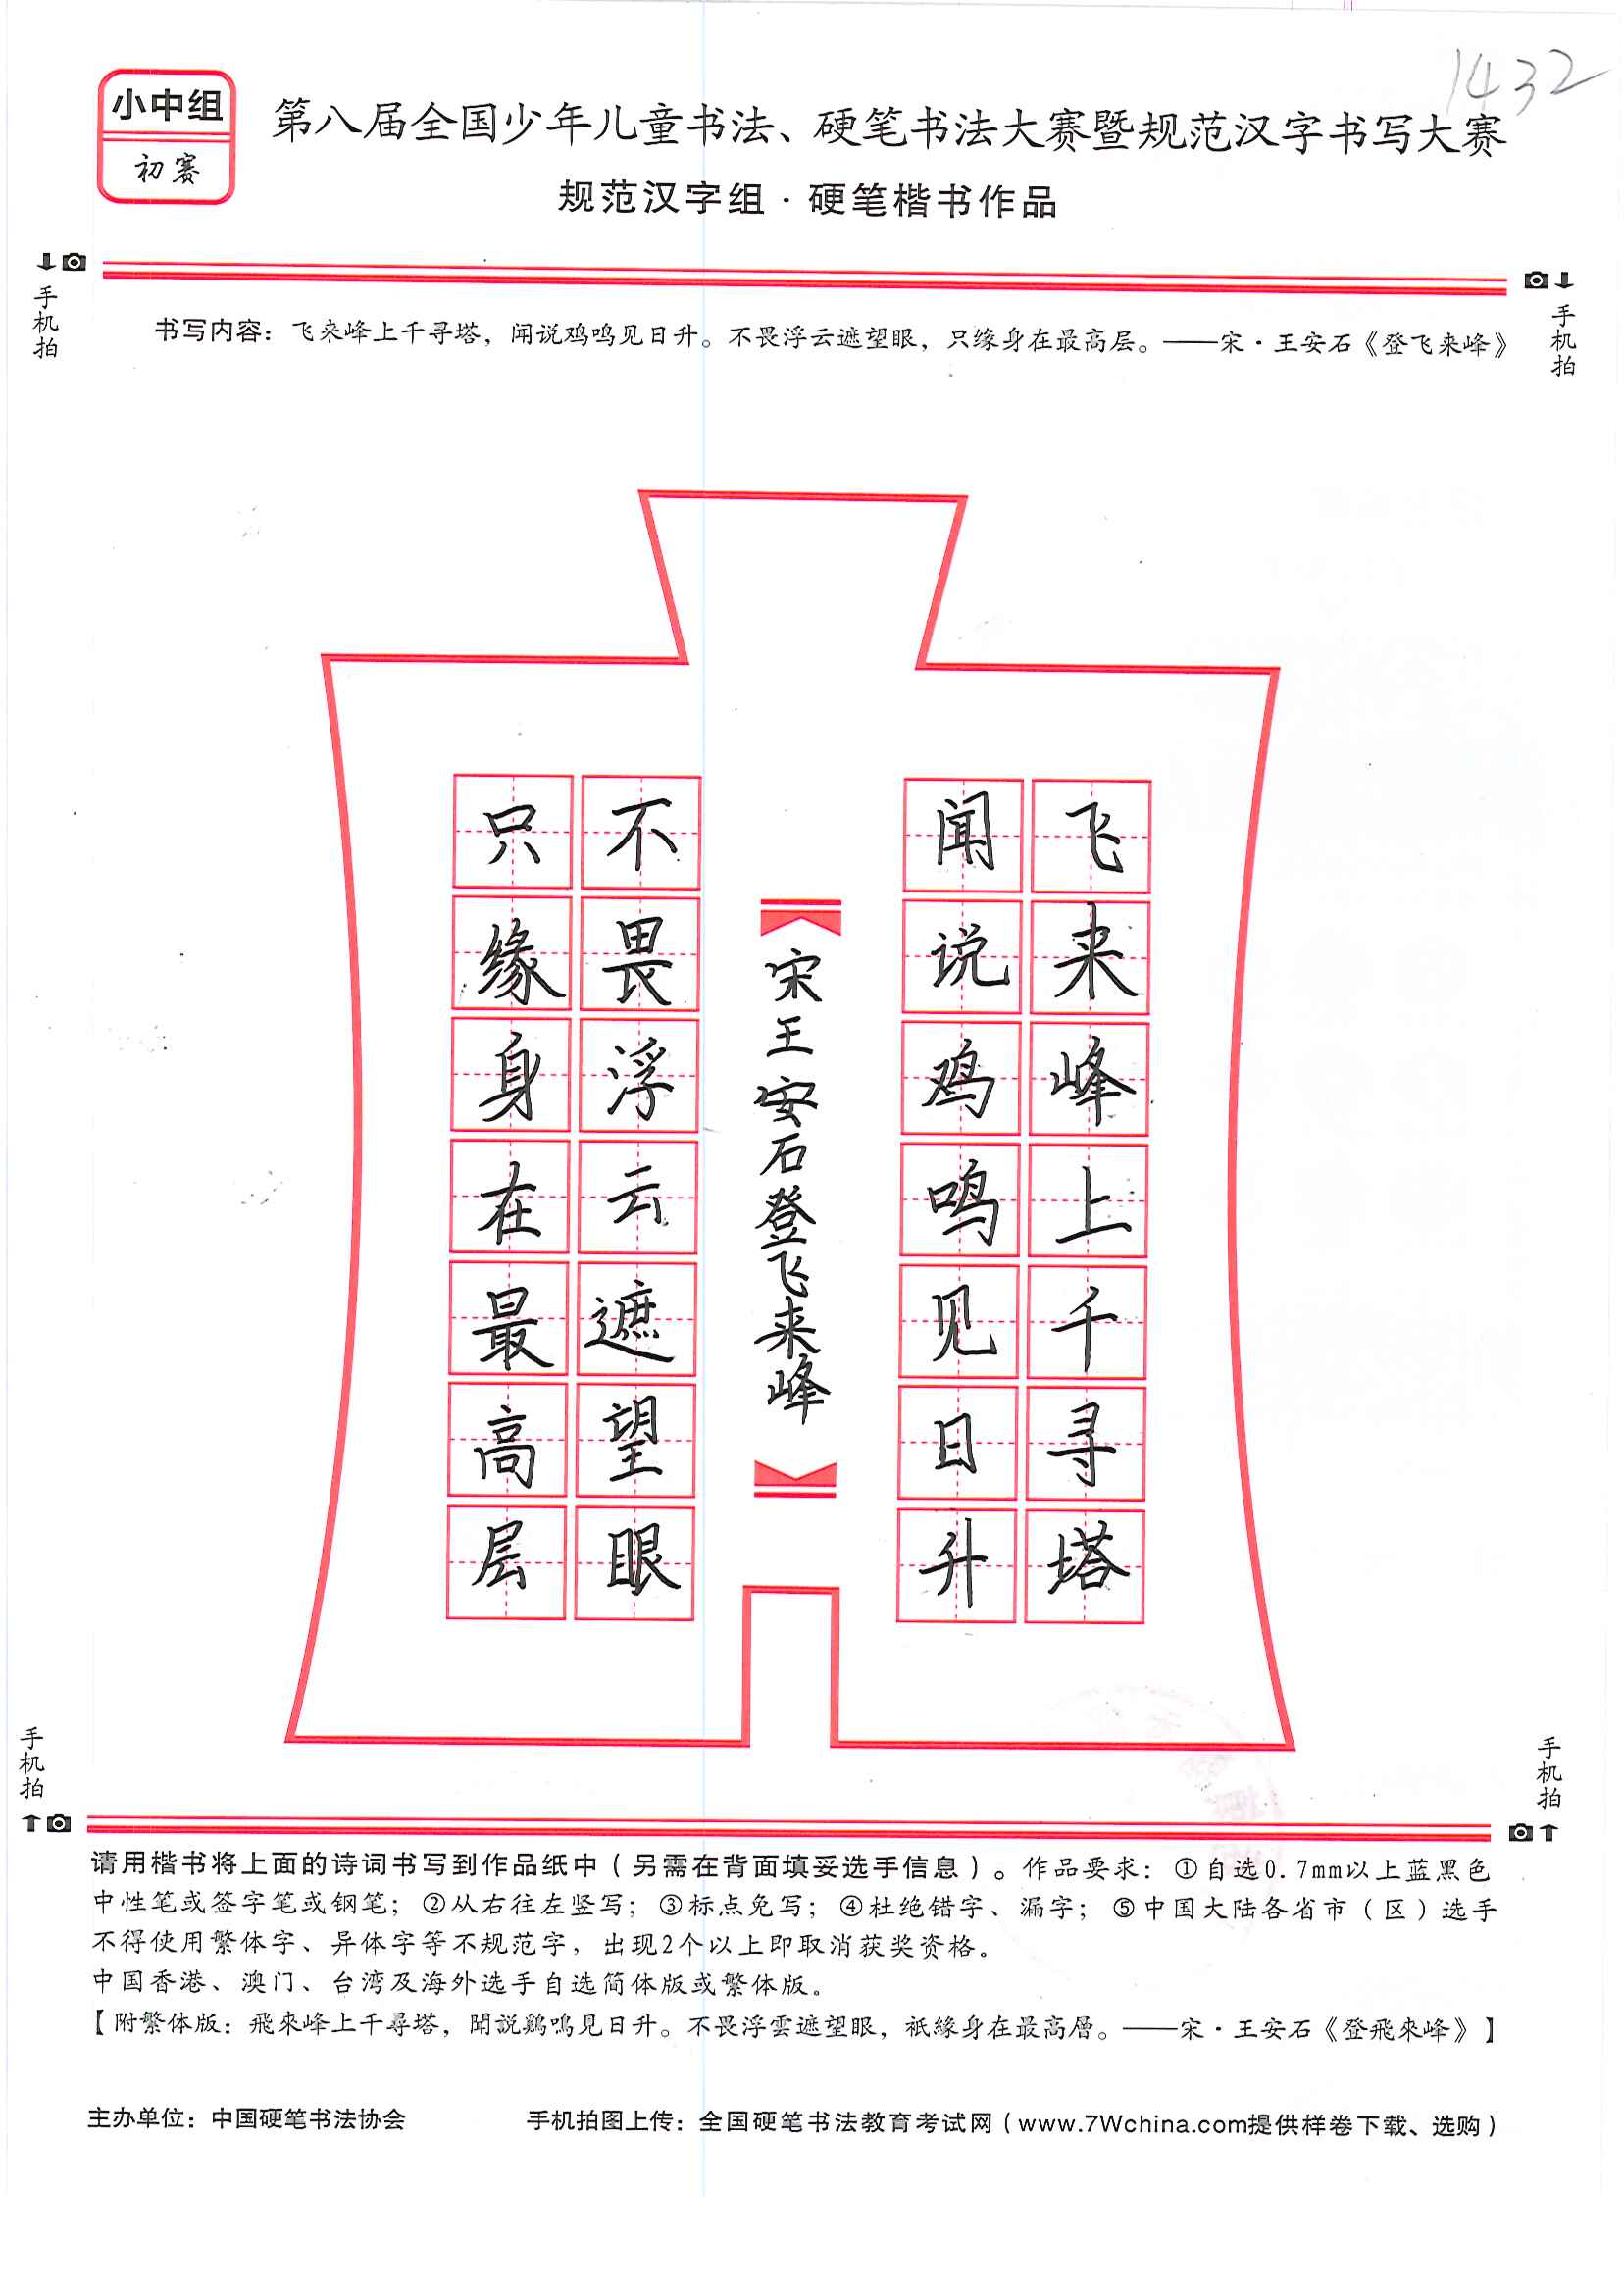 1432
小中组
初赛
第八届全国少年儿童书法、硬笔书法大赛暨规范汉字书写大赛
规范汉字组·硬笔楷书作品
手机拍
手机拍
书写内容：飞来峰上千寻塔，闻说鸡鸣见日升。不畏浮云遮望眼，只缘身在最高层。——宋·王安石《登飞来峰》
飞来峰上千寻塔
闻说鸡鸣见日升
宋王安石登飞来峰
不畏浮云遮望眼
只缘身在最高层
手机拍
手机拍
请用楷书将上面的诗词书写到作品纸中（另需在背面填妥选手信息）。作品要求：①自选0.7mm以上蓝黑色
中性笔或签字笔或钢笔；②从右往左竖写；③标点免写；④杜绝错字、漏字；⑤中国大陆各省市（区）选手
不得使用繁体字、异体字等不规范字，出现2个以上即取消获奖资格。
中国香港、澳门、台湾及海外选手自选简体版或繁体版。
【附繁体版：飛來峰上千尋塔，聞説鷄鳴見日升。不畏浮雲遮望眼，衹緣身在最高層。——宋·王安石《登飛來峰》】
主办单位：中国硬笔书法协会
手机拍图上传：全国硬笔书法教育考试网（www.7Wchina.com提供样卷下载、选购）